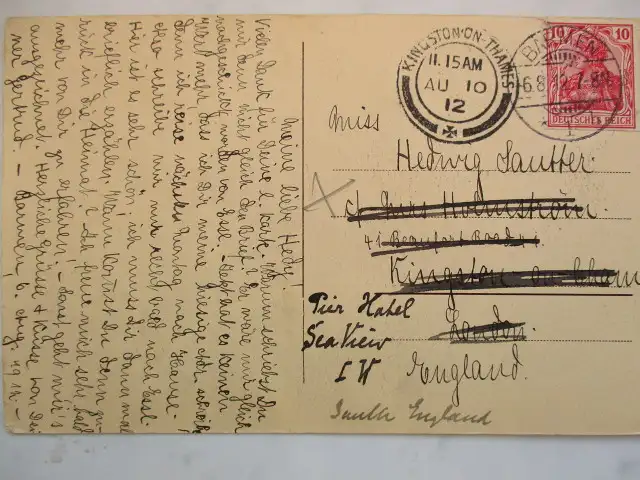 Meine liebe Hedy!
Vielen Dank für Deine l. Karte. Warum schriebst Du
mir denn nicht gleich den Brief? Er wäre mir gleich
nachgeschickt worden von Essl. - Jetzt hat es keinen
Wert mehr, dass ich Dir meine hiesige Adr. schreibe
denn ich reise nächsten Montag nach Hause.
Also schreibe mir nur recht bald nach Essl.
Hier ist es sehr schön, ich muss Dir dann mal
brieflich erzählen. Wann kommst Du denn zu-
rück in die Heimat? Ich freue mich sehr bald
mehr von Dir zu erfahren, - sonst geht mir's
ausgezeichnet. Herzliche Grüsse & Küsse von Dei
ner Gertrud - Barmen, 6. Aug. 1912. -
KINGSTON-ON-THAMES
11.15AM
AU 10
12
BARMEN
6.8.12.7-8N
10 10
DEUTSCHES REICH
Miss
Hedwig Sautter.
c/o Mrs Holmström.
41 Beaufort Road
Kingston on Tham
London.
Pier Hotel
Sea View
I W
England.
South England